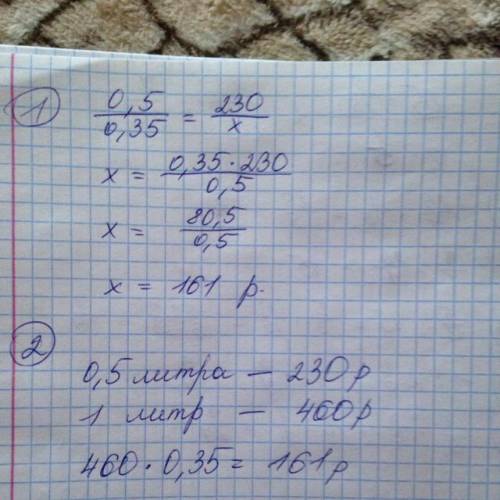 1
0,5/0,35 = 230/x
x = 0,35·230/0,5
x = 80,5/0,5
x = 161 р.
2
0,5 литра — 230р
1 литр — 460р
460·0,35 = 161р